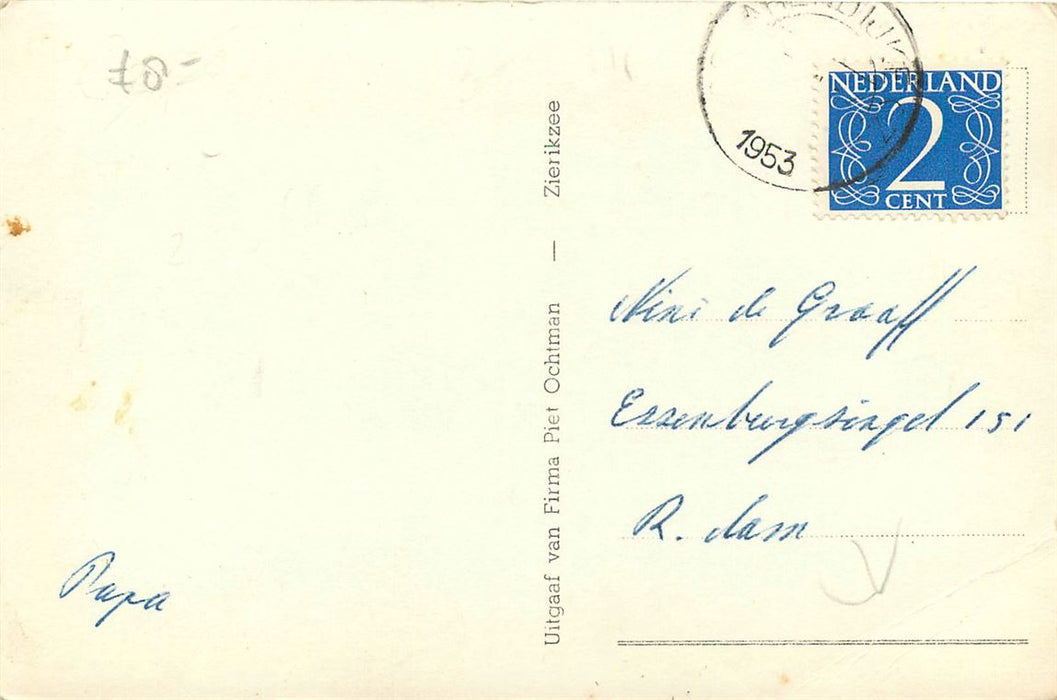 78-
1953
NEDERLAND
2
CENT
Uitgaaf van Firma Piet Ochtman — Zierikzee
Nini de Graaff
Essenburgsingel 151
R. dam
Papa